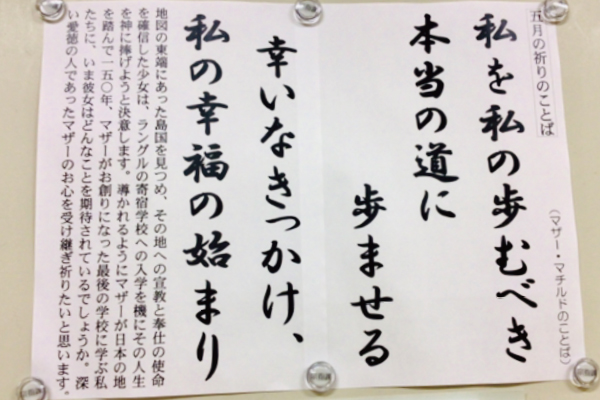 五月の祈りのことば
(マザー・マチルドのことば)
私を私の歩むべき
本当の道に
歩ませる
幸いなきっかけ、
私の幸福の始まり
地図の東端にあった島国を見つめ、その地への宣教と奉仕の使命
を確信した少女は、ラングルの寄宿学校への入学を機にその人生
を神に捧げようと決意します。導かれるようにマザーが日本の地
を踏んで一五〇年、マザーがお創りになった最後の学校に学ぶ私
たちに、いま彼女はどんなことを期待されているでしょうか。深
い愛徳の人であったマザーのお心を受け継ぎ祈りたいと思います。